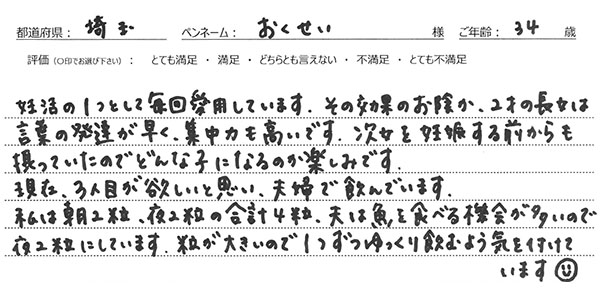 都道府県： 埼玉 ペンネーム： おくせい 様 ご年齢： 34 歳
評価（○印でお選び下さい）： とても満足 ・ 満足 ・ どちらとも言えない ・ 不満足 ・ とても不満足
妊活の1つとして毎回愛用しています. その効果のお陰か、2才の長女は
言葉の発達が早く、集中力も高いです. 次女を妊娠する前からも
摂っていたのでどんな子になるのか楽しみです.
現在、3人目が欲しいと思い、夫婦で飲んでいます.
私は朝2粒、夜2粒の合計4粒、夫は魚を食べる機会が多いので
夜2粒にしています. 粒が大きいので1つずつゆっくり飲むよう気を付けて
います☺